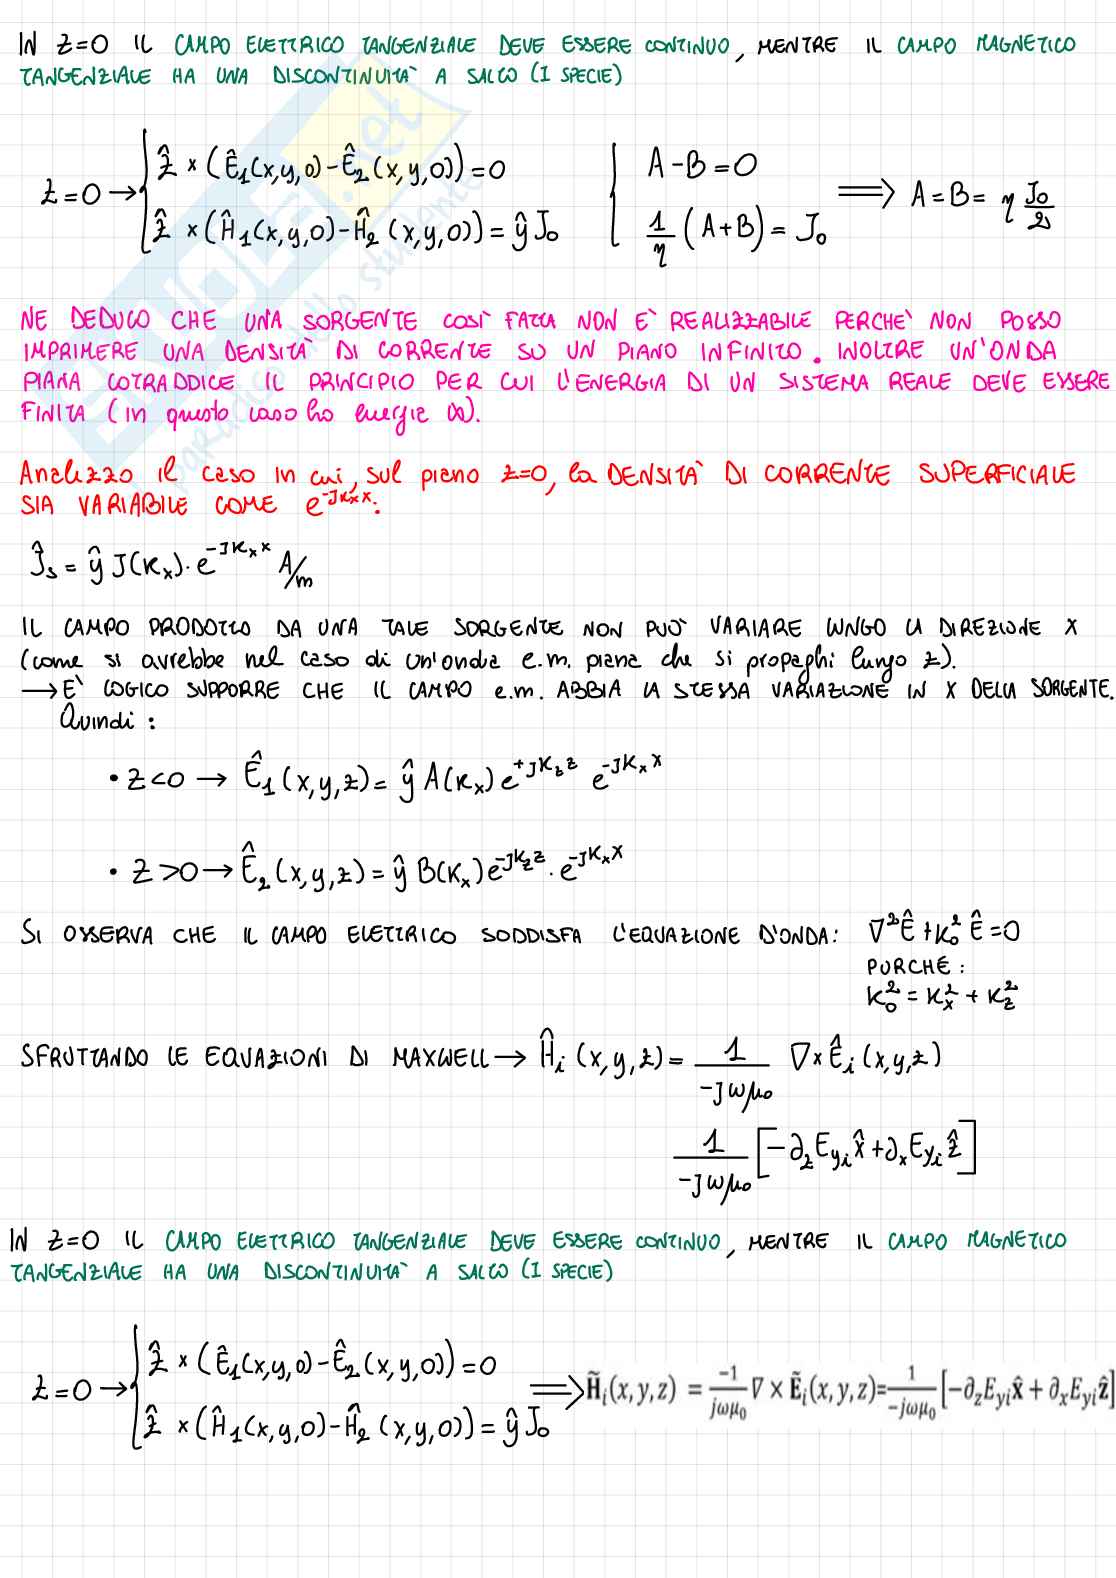 IN z=0 IL CAMPO ELETTRICO TANGENZIALE DEVE ESSERE CONTINUO, MENTRE IL CAMPO MAGNETICO
TANGENZIALE HA UNA DISCONTINUITA` A SALTO (I SPECIE)
z=0 → { ẑ × (Ê₁(x,y,0)-Ê₂(x,y,0))=0 { A-B=0
ẑ × (Ĥ₁(x,y,0)-Ĥ₂(x,y,0))= ŷ J₀ 1/η (A+B)= J₀ ⟹ A=B= η J₀/2
NE DEDUCO CHE UNA SORGENTE COSI` FATTA NON E` REALIZZABILE PERCHE` NON POSSO
IMPRIMERE UNA DENSITA` DI CORRENTE SU UN PIANO INFINITO. INOLTRE UN'ONDA
PIANA COTRADDICE IL PRINCIPIO PER CUI L'ENERGIA DI UN SISTEMA REALE DEVE ESSERE
FINITA (in questo caso ho energie ∞).
Analizzo il caso in cui, sul piano z=0, la DENSITA` DI CORRENTE SUPERFICIALE
SIA VARIABILE COME e^{-jKₓx}:
Ĵₛ = ŷ J(Kₓ)·e^{-jKₓx} A/m
IL CAMPO PRODOTTO DA UNA TALE SORGENTE NON PUO` VARIARE LUNGO LA DIREZIONE X
(come si avrebbe nel caso di un'onda e.m. piana che si propaghi lungo z).
→ E` LOGICO SUPPORRE CHE IL CAMPO e.m. ABBIA LA STESSA VARIAZIONE IN X DELLA SORGENTE.
Quindi:
• z<0 → Ê₁(x,y,z)= ŷ A(Kₓ) e^{+jK_z z} e^{-jKₓx}
• z>0 → Ê₂(x,y,z)= ŷ B(Kₓ) e^{-jK_z z}·e^{-jKₓx}
SI OSSERVA CHE IL CAMPO ELETTRICO SODDISFA L'EQUAZIONE D'ONDA: ∇²Ê + K₀² Ê=0
PURCHÉ:
K₀² = Kₓ² + K_z²
SFRUTTANDO LE EQUAZIONI DI MAXWELL → Ĥᵢ(x,y,z)= 1/(-jωμ₀) ∇×Êᵢ(x,y,z)
1/(-jωμ₀) [-∂_z E_yi x̂ + ∂ₓ E_yi ẑ]
IN z=0 IL CAMPO ELETTRICO TANGENZIALE DEVE ESSERE CONTINUO, MENTRE IL CAMPO MAGNETICO
TANGENZIALE HA UNA DISCONTINUITA` A SALTO (I SPECIE)
z=0 → { ẑ × (Ê₁(x,y,0)-Ê₂(x,y,0))=0
ẑ × (Ĥ₁(x,y,0)-Ĥ₂(x,y,0))= ŷ J₀ ⟹ H̃ᵢ(x,y,z) = -1/(jωμ₀) ∇ × Ẽᵢ(x,y,z)= 1/(-jωμ₀) [-∂_z E_yi x̂ + ∂ₓ E_yi ẑ]